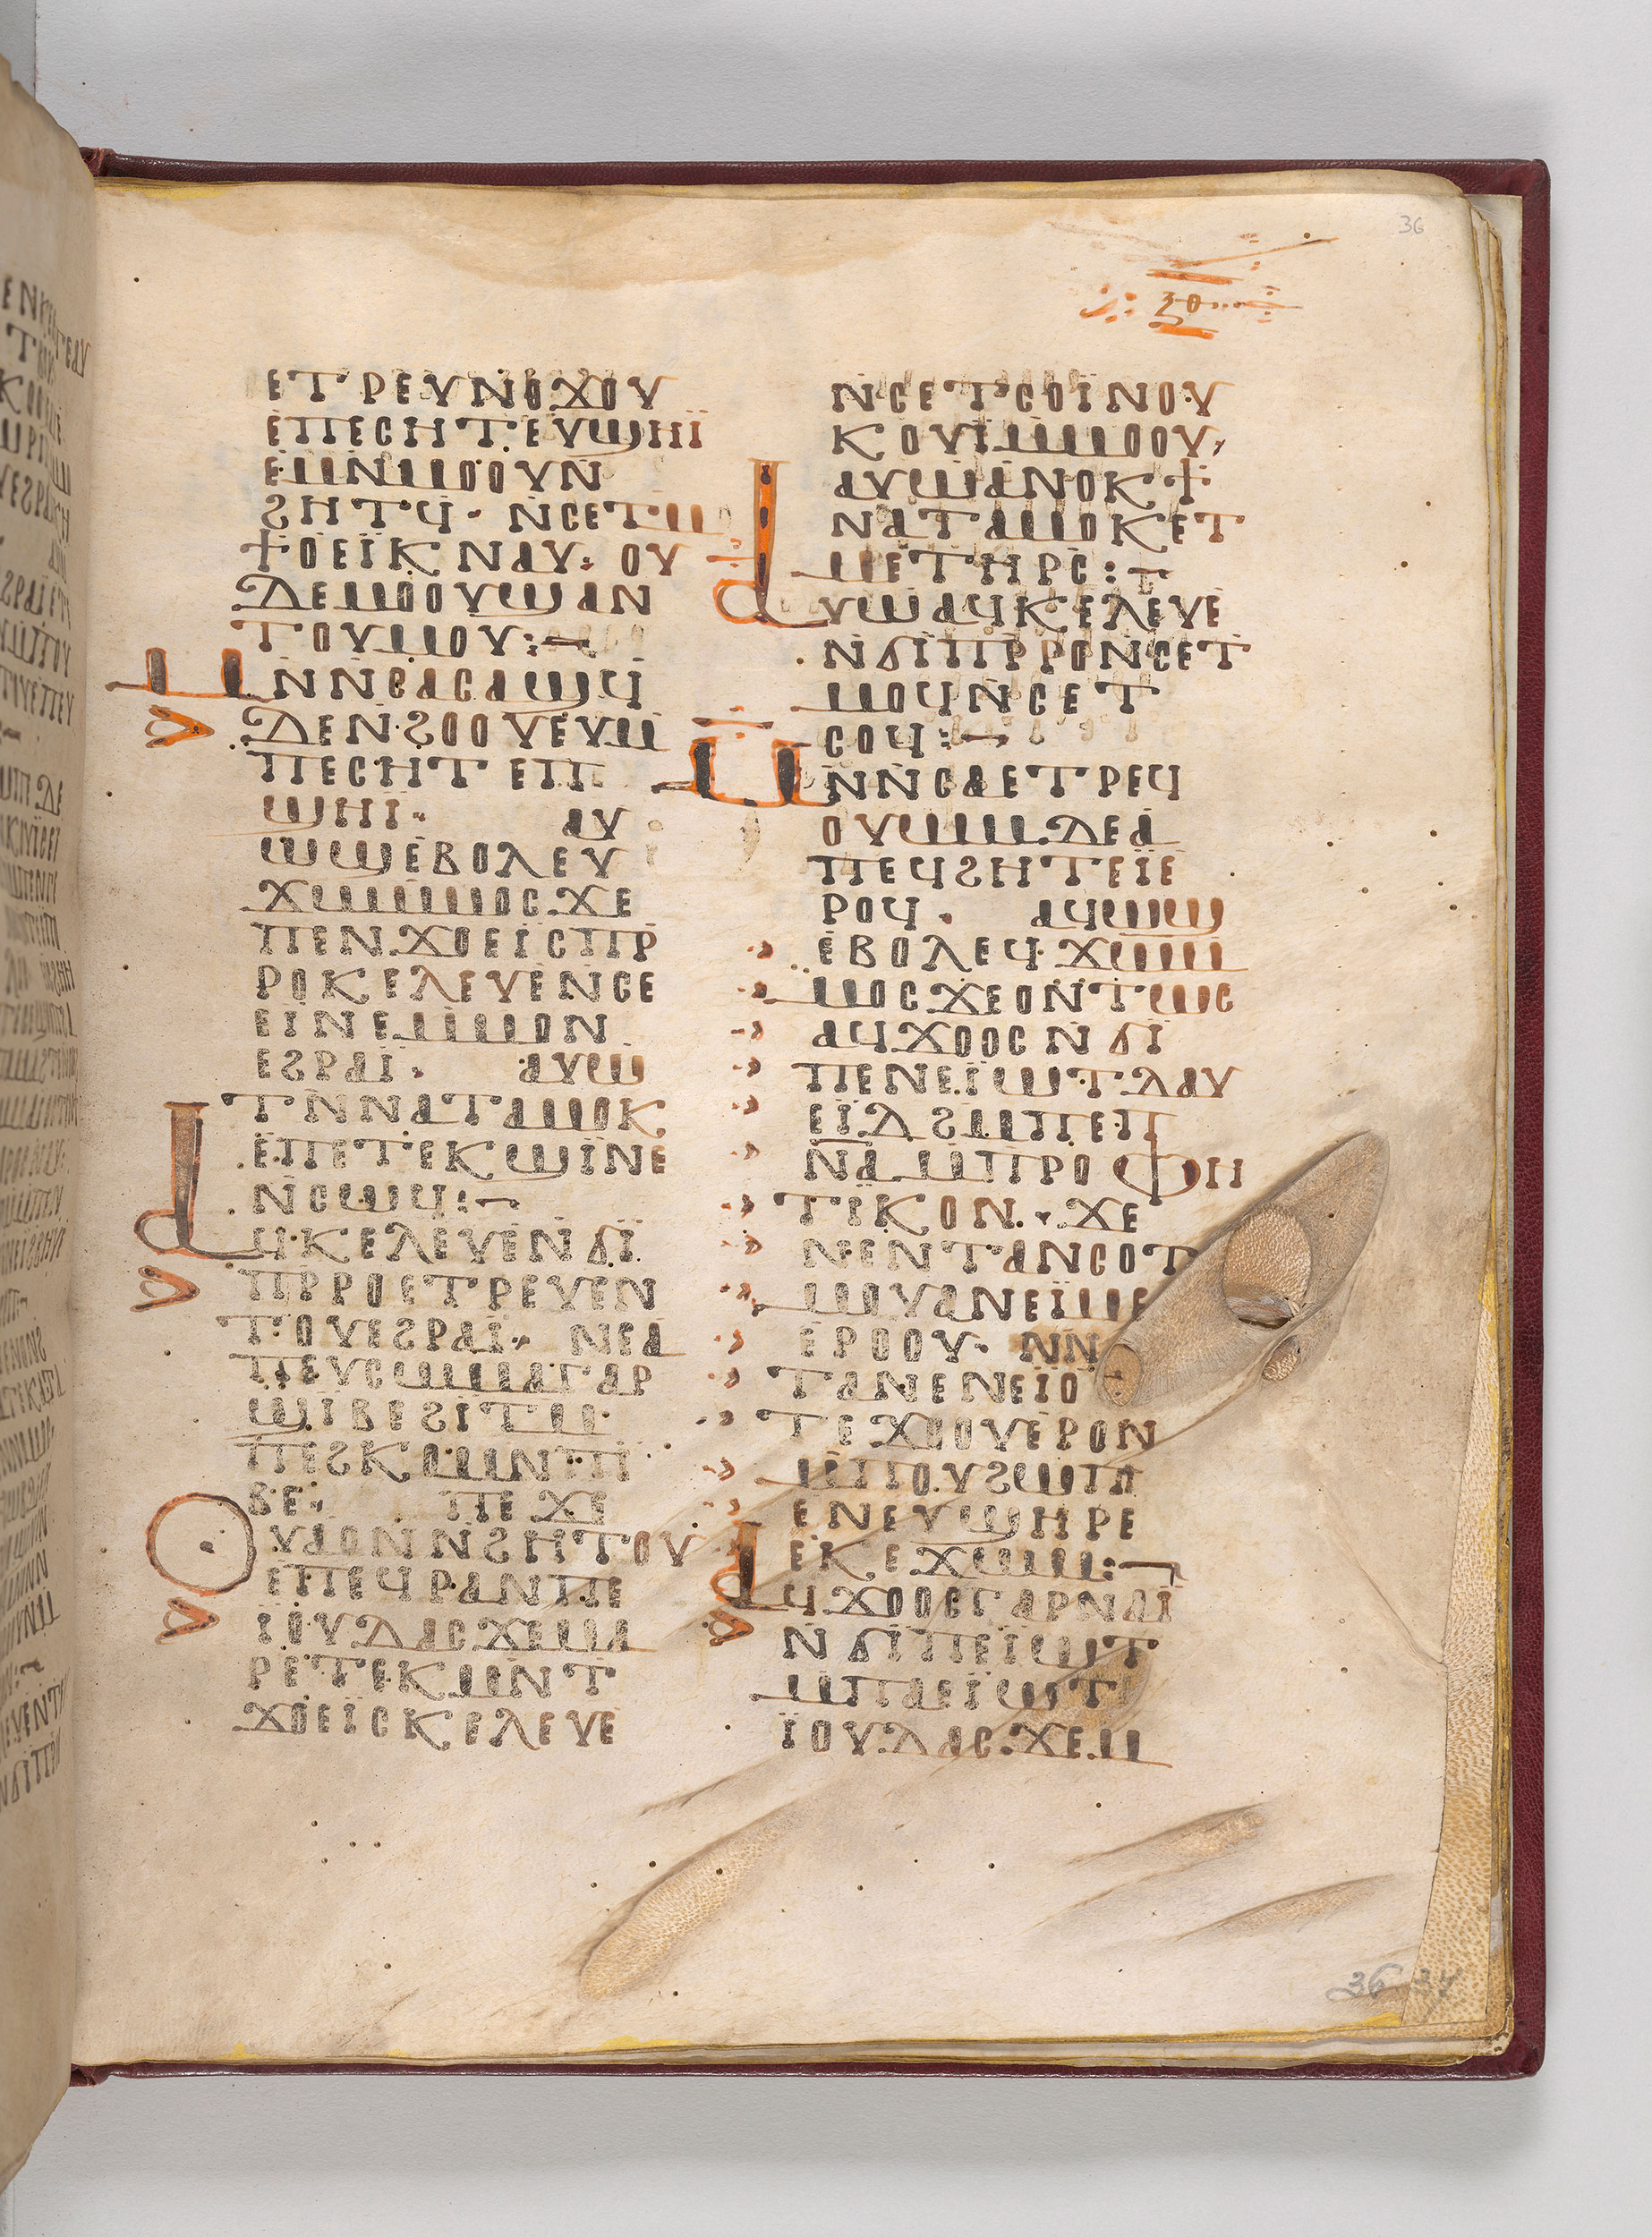 36
ⲉⲧⲣⲉⲩⲛⲟϫⲟⲩ
ⲉⲡⲉⲥⲏⲧⲉⲩϣⲏⲓ̈
ⲉⲙⲛⲙⲟⲟⲩⲛ
ϩⲏⲧϥ· ⲛⲥⲉⲧⲙ
ϯⲟⲉⲓ̈ⲕ ⲛⲁⲩ: ⲟⲩ
ⲇⲉⲙⲟⲟⲩϣⲁⲛ
ⲧⲟⲩⲙⲟⲩ:—
ⲙⲛⲛⲥⲁⲥⲁϣϥ
ⲇⲉⲛϩⲟⲟⲩⲉⲩⲙ
ⲡⲉⲥⲏⲧ ⲉⲡ
ϣⲏⲓ· ⲁⲩ
ⲱϣⲉⲃⲟⲗⲉⲩ
ϫⲱⲙⲙⲟⲥϫⲉ
ⲡⲉⲛϫⲟⲉⲓⲥⲡⲣ
ⲣⲟⲕⲉⲗⲉⲩⲉⲛⲥⲉ
ⲉⲓⲛⲉⲙⲙⲟⲛ
ⲉϩⲣⲁⲓ̈· ⲁⲩⲱ
ⲧⲛⲛⲁⲧⲁⲙⲟⲕ
ⲉⲡⲉⲧⲉⲕϣⲓⲛⲉ
ⲛⲥⲱϥ:—
ⲁϥⲕⲉⲗⲉⲩⲉⲛϭⲓ̈
ⲡⲣⲣⲟⲉⲧⲣⲉⲩⲉⲛ
ⲧⲟⲩⲉϩⲣⲁⲓ̈· ⲛⲉⲁ
ⲡⲉⲩⲥⲱⲙⲁⲅⲁⲣ
ϣⲓⲃⲉϩⲓⲧⲙ
ⲡⲉϩⲕⲟⲙⲛⲡ
ⲃⲉ· ⲡⲉϫⲉ
ⲟⲩⲁⲟⲛⲛϩⲏⲧⲟⲩ
ⲉⲡⲉϥⲣⲁⲛⲡⲉ
ⲓ̈ⲟⲩⲇⲁⲥϫⲉⲙⲁ
ⲣⲉⲧⲉⲕⲙⲛⲧ
ϫⲟⲉⲓ̈ⲥⲕⲉⲗⲉⲩⲉ
ⲛⲥⲉⲧⲥⲟⲓ̈ⲛⲟⲩ
ⲕⲟⲩⲓ̈ⲙⲙⲟⲟⲩ,
ⲁⲩⲱⲁⲛⲟⲕϯ
ⲛⲁⲧⲁⲙⲟⲕⲉⲧ
ⲙⲉⲧⲏⲣⲥ:—
ⲁⲩⲱⲁϥⲕⲉⲗⲉⲩⲉ
ⲛϭⲓⲡⲣⲣⲟⲛⲥⲉⲧ
ⲙⲟϥⲛⲥⲉⲧ
ⲥⲟϥ:—
ⲙⲛⲛⲥⲁⲉⲧⲣⲉϥ
ⲟⲩⲱⲙⲇⲉⲁ
ⲡⲉϥϩⲏⲧⲉⲓ̈ⲉ
ⲣⲟϥ· ⲁϥⲱϣ
ⲉⲃⲟⲗⲉϥϫⲱⲙ
ⲙⲟⲥϫⲉⲟⲛⲧⲱⲥ
ⲁϥϫⲟⲟⲥⲛϭⲓ
ⲡⲉⲛⲉⲓ̈ⲱⲧⲇⲁⲩ
ⲉⲓ̈ⲇϩⲙⲡⲉⲡ
ⲛⲁⲙⲡⲣⲟⲫⲏ
ⲧⲓ̈ⲕⲟⲛ· ϫⲉ
ⲛⲉⲛⲧⲁⲛⲥⲟⲧ
ⲙⲟⲩⲁⲛⲉⲓ̈ⲙⲉ
ⲉⲣⲟⲟⲩ· ⲛⲛ
ⲧⲁⲛⲉⲛⲉⲓ̈ⲟ
ⲧⲉϫⲟⲟⲩⲉⲣⲟⲛ
ⲙⲡⲟⲩϩⲱⲡ
ⲉⲛⲉⲩϣⲏⲣⲉ
ⲉⲕⲉϫⲱⲙ:—
ⲁϥϫⲟⲟⲥⲅⲁⲣⲛⲁⲓ̈
ⲛϭⲓⲡⲉⲓ̈ⲱⲧ
ⲙⲡⲁⲉⲓ̈ⲱⲧ
ⲓ̈ⲟⲩⲇⲁⲥϫⲉⲙ
36